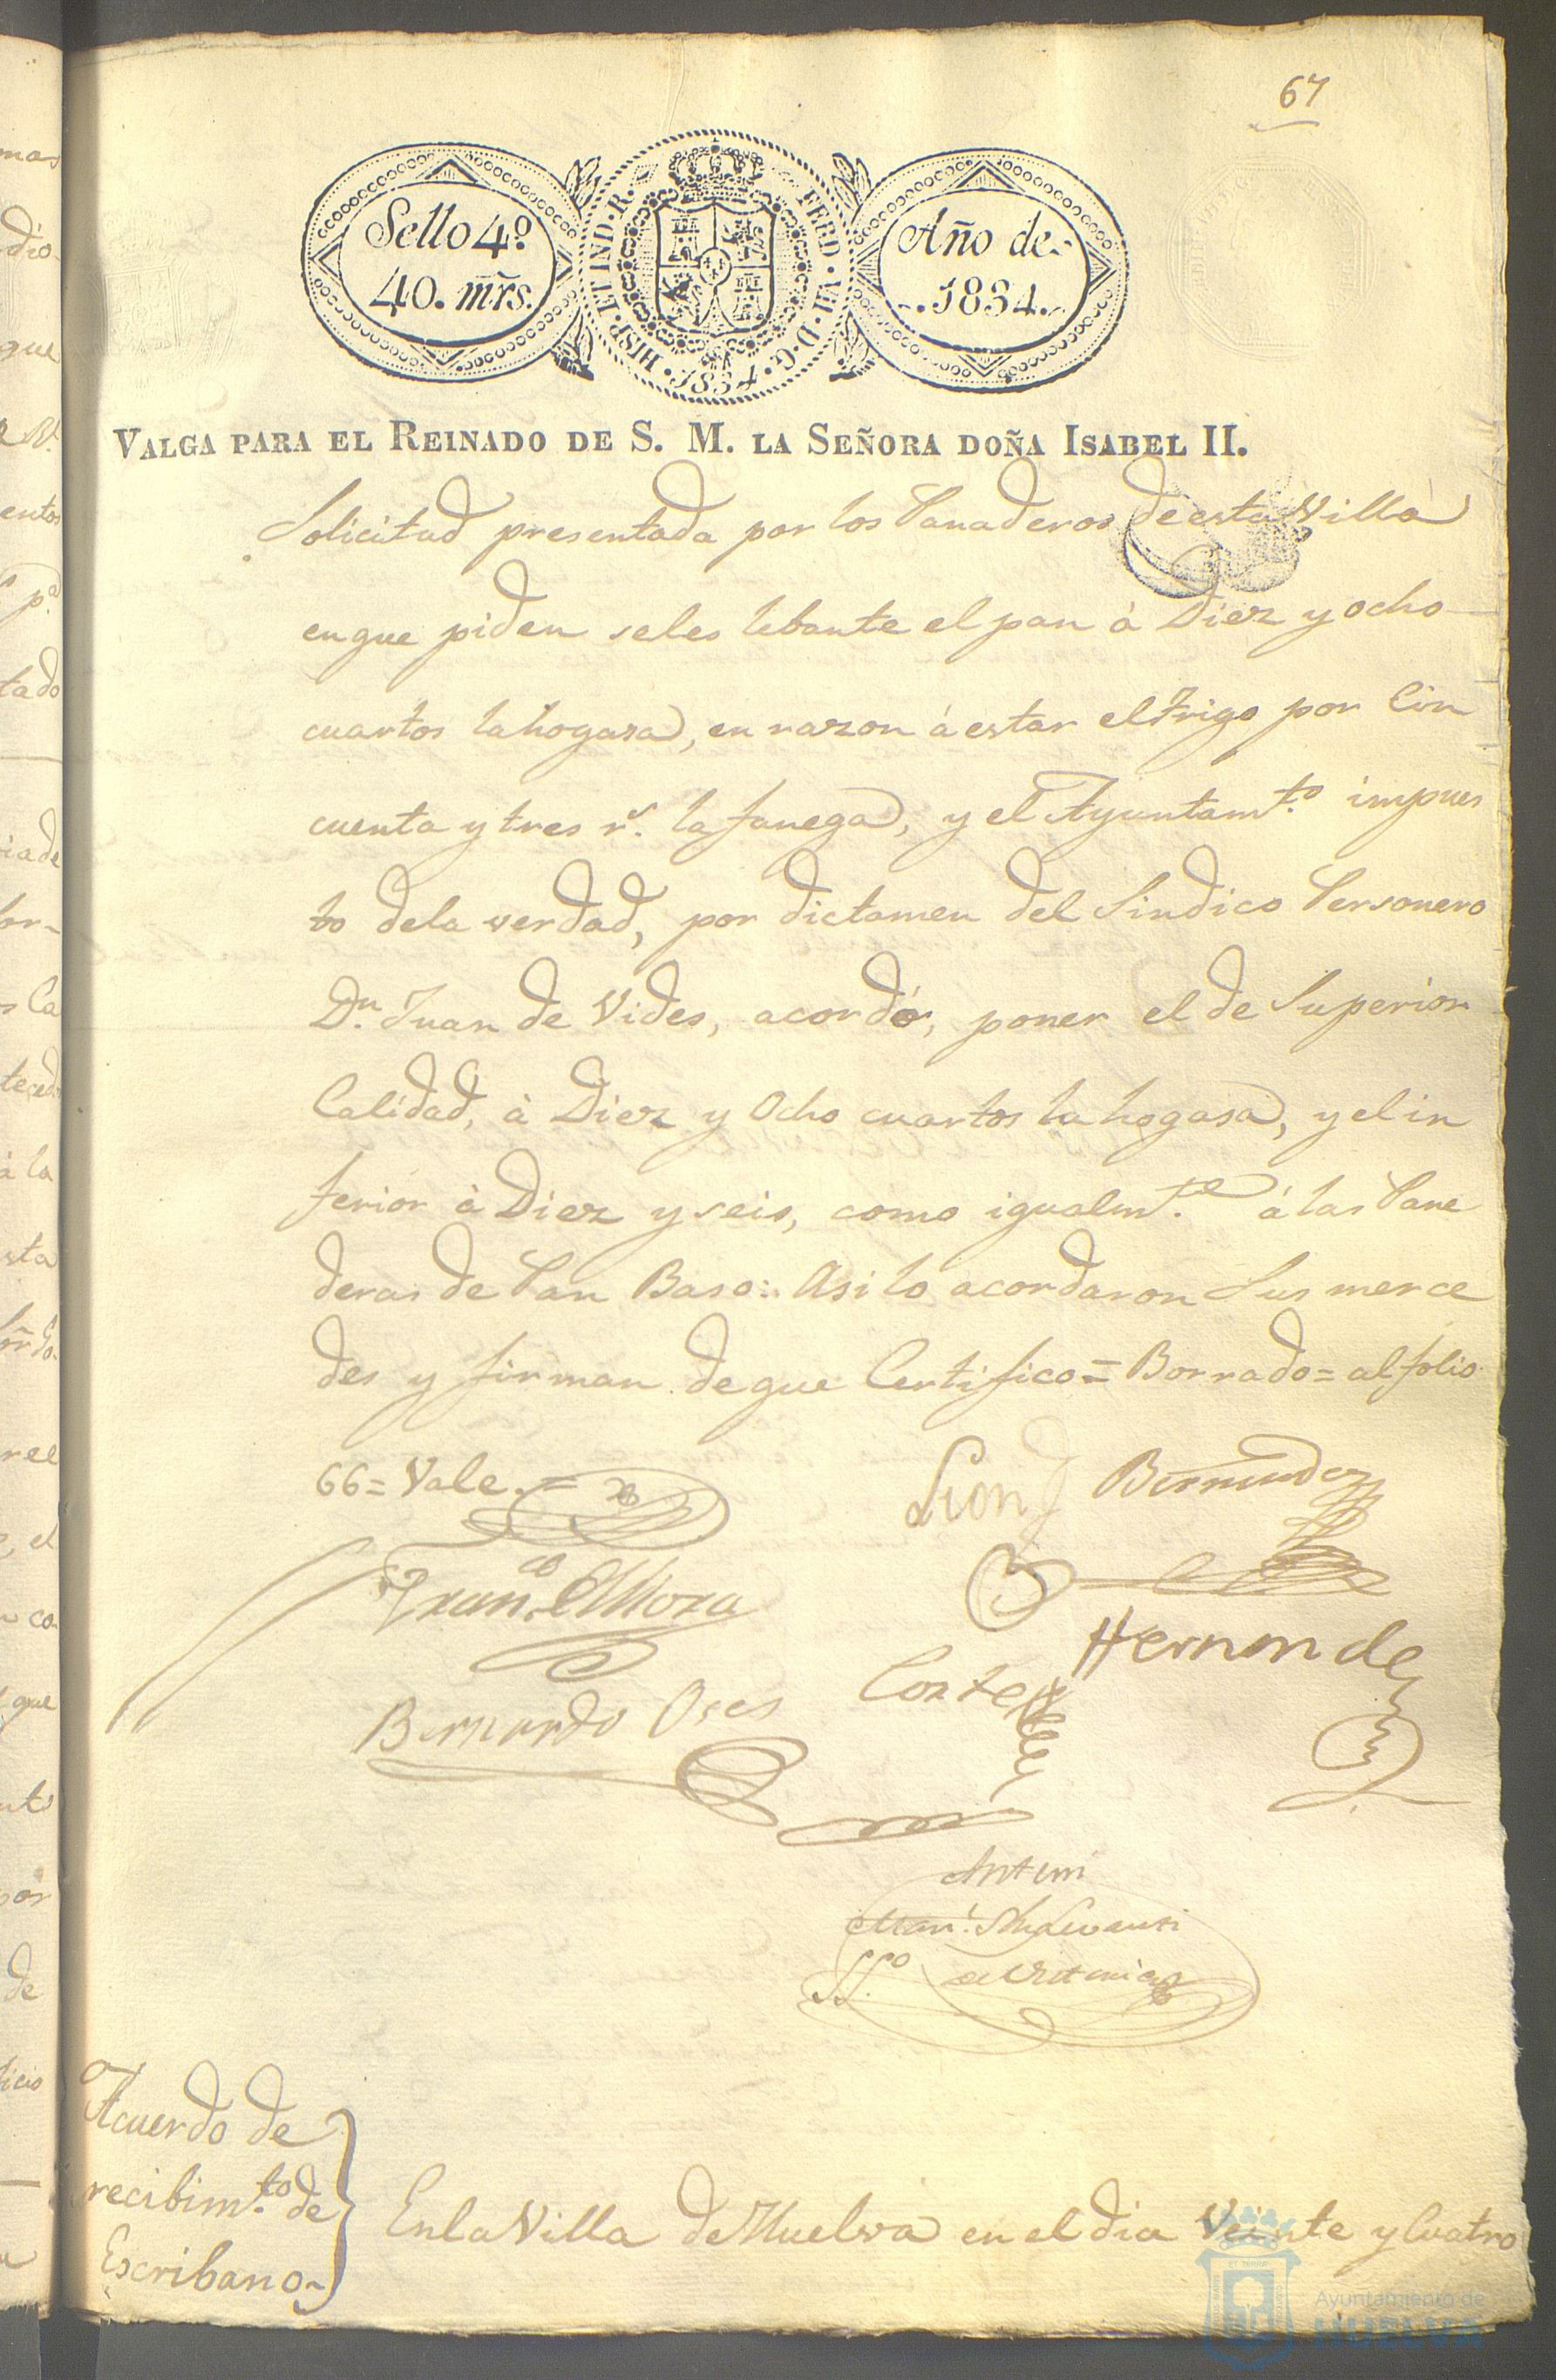 67
Sello 4.º
40. mrs.
HISP. ET IND. R.
FERD. VII. D. G.
1834.
Año de
1834.
VALGA PARA EL REINADO DE S. M. LA SEÑORA DOÑA ISABEL II.
Solicitud presentada por los Panaderos de esta Villa
enque piden seles lebante el pan à Diez y ocho
cuartos la hogasa, en razon á estar el trigo por Cin
cuenta y tres r.s la fanega, y el Ayuntam.to impues
to dela verdad, por dictamen del Sindico Personero
D.n Juan de Vides, acordó, poner el de Superior
Calidad, à Diez y Ocho cuartos la hogasa, y el in
ferior à Diez y seis, como igualm.te á las Pane
deras de Pan Baso: Asi lo acordaron Sus merce
des y firman de que Certifico = Borrado = al folio
66 = Vale. =
Bermudez
Fran.co Mora
Hernandez
Cortes
Bernardo Oses
Antemi
Man.l
SS.no
Acuerdo de
recibim.to de
Escribano
Enla Villa de Huelva en el dia Veinte y Cuatro
Ayuntamiento de
HUELVA
mas
dio
que
entos
p.a
tado
iade
or-
s Ca
à la
sta
ree
, el
co-
que
or
de
icio